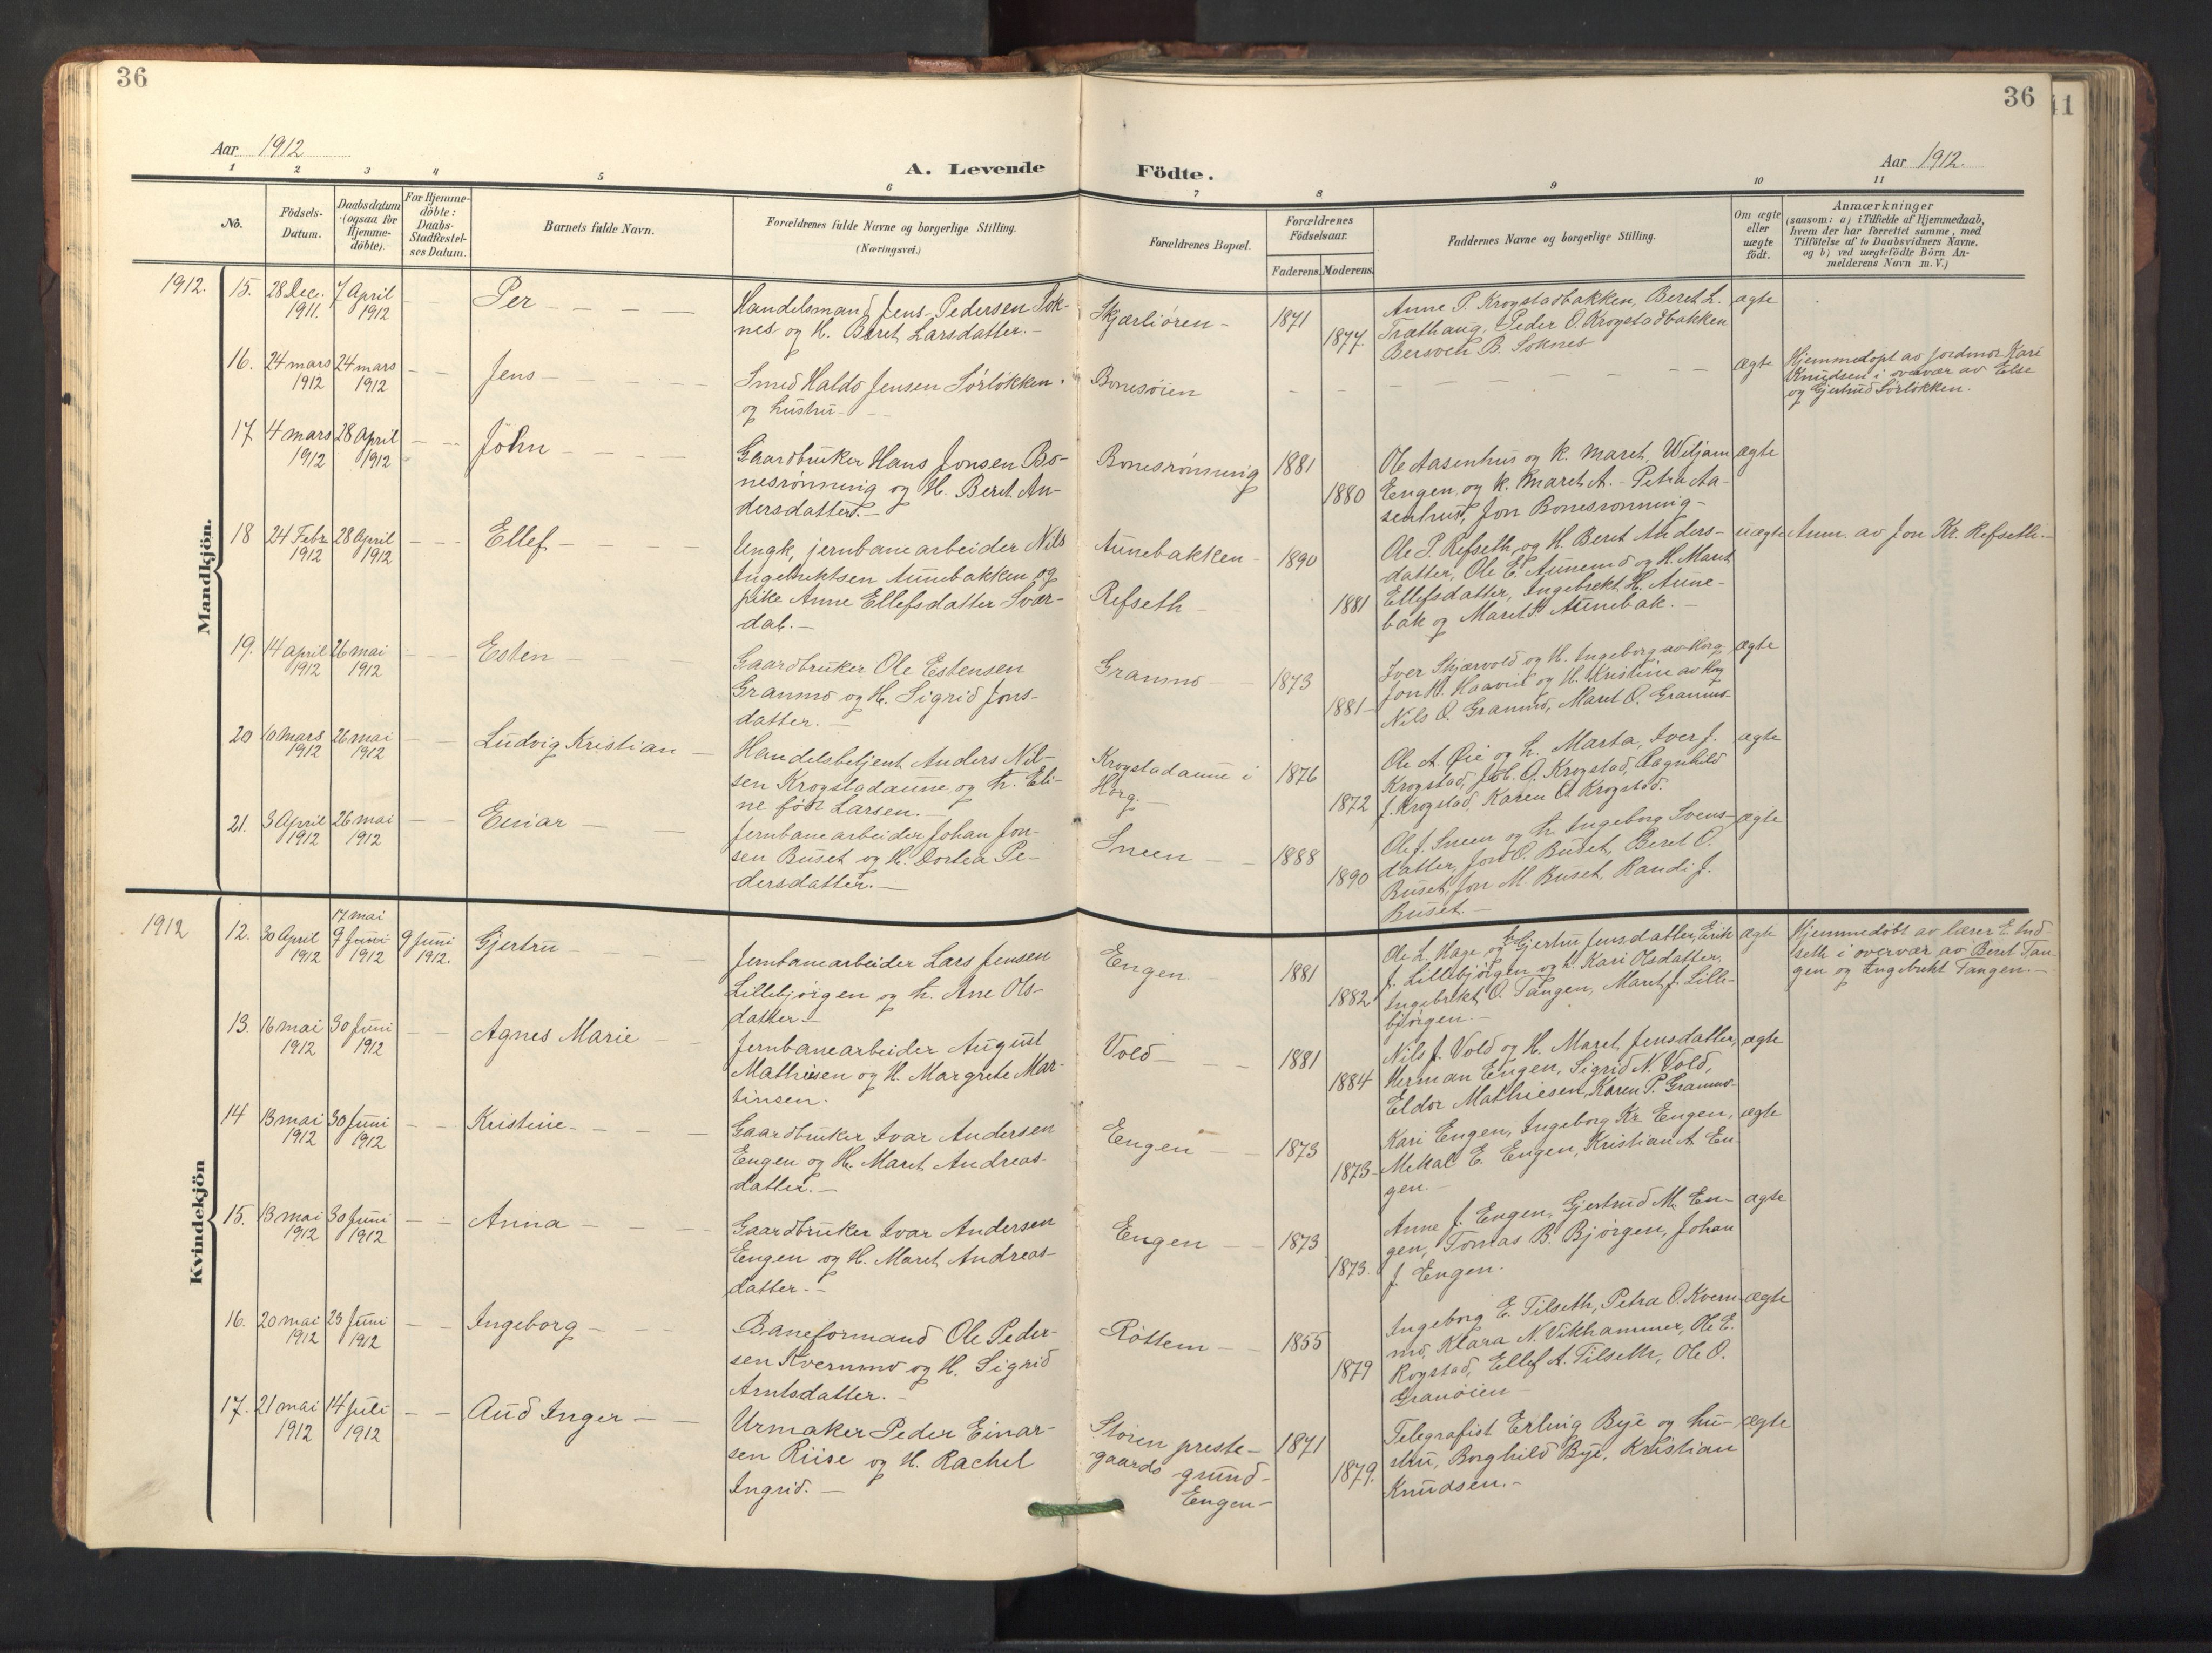 36
36
41
Aar 1912
A. Levende
Födte.
Aar 1912.
1 2 3 4 5 6 7 8 9 10 11
No.
Födsels-
Datum.
Daabsdatum
(ogsaa for
Hjemme-
döbte).
For Hjemme-
döbte:
Daabs-
Stadfæstel-
ses Datum.
Barnets fulde Navn.
Forældrenes fulde Navne og borgerlige Stilling.
(Næringsvei.)
Forældrenes Bopæl.
Forældrenes
Födselsaar.
Faderens.
Moderens.
Faddernes Navne og borgerlige Stilling.
Om ægte
eller
uægte
födt.
Anmærkninger
(saasom: a) i Tilfælde af Hjemmedaab,
hvem der har forrettet samme, med
Tilföielse af to Daabsvidners Navne,
og b) ved uægtefödte Börn An-
melderens Navn m. V.)
Mandkjön.
1912.
15. 28 Dec. 1911. 7 April 1912 — — Per — — — —
Handelsmand Jens Pedersen Sok-
nes og H. Beret Larsdatter. —
Skjærliøren —
1871
1877.
Anne P. Krogstadbakken, Beret L.
Træthaug, Peder O. Krogstadbakken
Bersven B. Soknes
ægte
16. 24 mars 1912 24 mars 1912 — — Jens — — — —
Smed Haldo Jensen Sørløkken.
og hustru — —
Bonesøien
— — — — — — — —
ægte
Hjemmedøpt av jordmor Kari
Knudsen i overvær av Else
og Gjertrud Sørløkken.
17 4 mars 1912 28 April 1912 — — John — — — —
Gaardbruker Hans Jonsen Bo-
nesrønning og H. Beret An-
dersdatter. —
Bonesrønning
1881
1880
Ole Aasenhus og K. Maret, Wiljam
Engen, og K. Maret A. — Petra Aa-
senhus, Jon Bonesrønning —
ægte
18 24 Febr 1912 28 April 1912 — — Ellef — — — —
Ungk. jernbanearbeider Nils
Ingebrektsen Aunebakken og
pike Anne Ellefsdatter Svær-
dal. —
Aunebakken —
Refseth —
1890
1881
Ole P. Refseth og H. Beret Anders-
datter, Ole E. Aunemo og H. Maret
Ellefsdatter, Ingebrekt H. Aune-
bak og Maret Aunebak. —
uægte
Anm. av Jon Kr. Refseth. —
19. 14 april 1912 26 mai 1912 — — Esten — — —
Gaardbruker Ole Estensen
Granmo og H. Sigrid Jons-
datter. —
Granmo —
1873
1881 —
Iver Skjærvold og H. Ingeborg av Horg
Jon M. Haavin og H. Kristine av Horg
Nils O. Granmo, Maret O. Granmo
ægte
20 10 mars 1912 26 mai 1912 — — Ludvig Kristian —
Handelsbetjent Anders Nil-
sen Krogstadaune og h. Eli-
ne født Larsen. —
Krogstadaune i
Horg. —
1876
1872
Ole A. Øie og h. Marta, Iver J.
Krogstad, Joh. O. Krogstad, Ragnhild
J. Krogstad, Karen O. Krogstad.
ægte
21. 3 April 1912 26 mai 1912 — — Einar — —
Jernbanearbeider Johan Jon-
sen Buset og H. Dortea Pe-
dersdatter. —
Sneen — —
1888
1890
Ole J. Sneen og h. Ingeborg Svens-
datter, Jon O. Buset, Beret O.
Buset, Jon M. Buset, Randi J.
Buset. —
ægte
Kvindekjön
1912
12. 30 April 1912 17 mai 9 Juni 1912 9 Juni 1912. Gjertru — — — —
Jernbanearbeider Lars Jensen
Lillebjørgen og h. Ane Ols-
datter. —
Engen.
1881
1882
Ole L. Hage og h. Gjertru Jensdatter, Erik
J. Lillebjørgen og h. Kari Olsdatter,
Ingebrekt O. Tangen, Maret J. Lille-
bjørgen. —
ægte
Hjemmedøbt av lærer E. Ind-
seth i overvær av Beret Tan-
gen og Ingebrekt Tangen. —
13. 16 mai 1912 30 Juni 1912 — — Agnes Marie — —
Jernbanearbeider August
Mathiesen og H. Margrete Mar-
tinsen.
Vold — — —
1881
1884
Nils J. Vold og H. Maret Jensdatter,
Herman Engen, Sigrid N. Vold,
Eldor Mathiesen, Karen P. Granmo
ægte
14 13 mai 1912 30 Juni 1912 — — Kristine — — — —
Gaardbruker Ivar Andersen
Engen og H. Maret Andreas-
datter. —
Engen — —
1873
1873 —
Kari Engen, Ingeborg Kr. Engen,
Mikal E. Engen, Kristian A. En-
gen. —
ægte
15. 13 mai 1912 30 Juni 1912 — — Anna — — —
Gaardbruker Ivar Andersen
Engen og H. Maret Andreas-
datter. —
Engen — —
1873
1873.
Anne J. Engen, Gjertrud M. En-
gen, Tomas B. Bjørgen, Johan
J. Engen.
ægte
16. 20 mai 1912 23 Juni 1912 — — Ingeborg — — —
Baneformand Ole Peder-
sen Kvernmo og H. Sigrid
Arntsdatter. —
Røttem — —
1855
1879
Ingeborg E. Tilseth, Petra O. Kvern-
mo, Klara N. Vikhammer, Ole E.
Rogstad, Ellef A. Tilseth, Ole O.
Granøien —
ægte
17. 21 mai 1912 14 Juli 1912 — — Aud Inger — —
Urmaker Peder Einar-
sen Riise og H. Rachel
Ingrid. —
Støren preste-
gaards grund —
Engen —
1871
1879.
Telegrafist Erling Bye og hu-
stru, Borghild Bye, Kristian
Knudsen. —
ægte